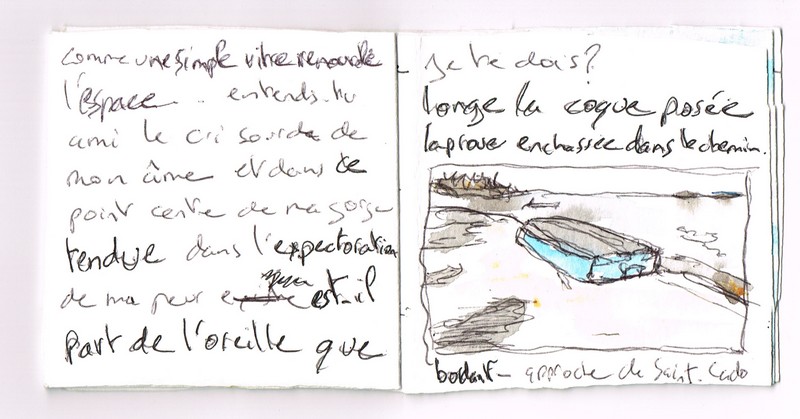 comme une simple vitre renoue le
l'espace.. entends-tu
ami le cri sourd de
mon âme et dans ce
point centre de ma gorge
tendue dans l'expectoration
de ma peur est-il
part de l'oreille que
je te dois?
longe la coque posée
la proue enchassée dans le chemin.
bodant - approche de Saint. Cado